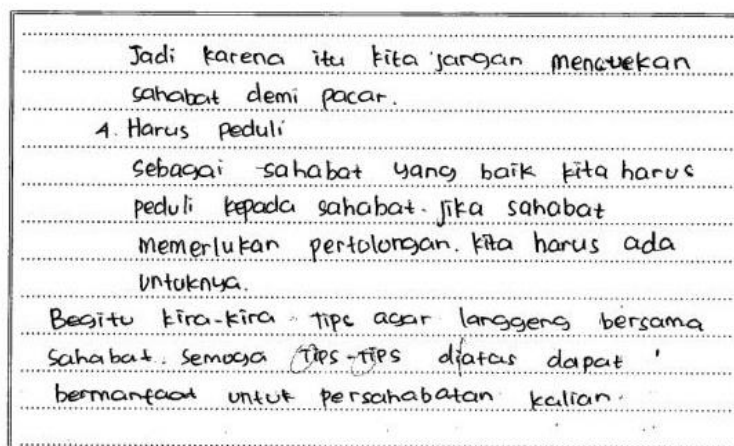 Jadi karena itu kita jangan mencuekan
sahabat demi pacar.
4. Harus peduli
sebagai sahabat yang baik kita harus
peduli kepada sahabat. Jika sahabat
memerlukan pertolongan. kita harus ada
untuknya.
Begitu kira-kira tips agar langgeng bersama
sahabat. semoga Tips-Tips diatas dapat
bermanfaat untuk persahabatan kalian.